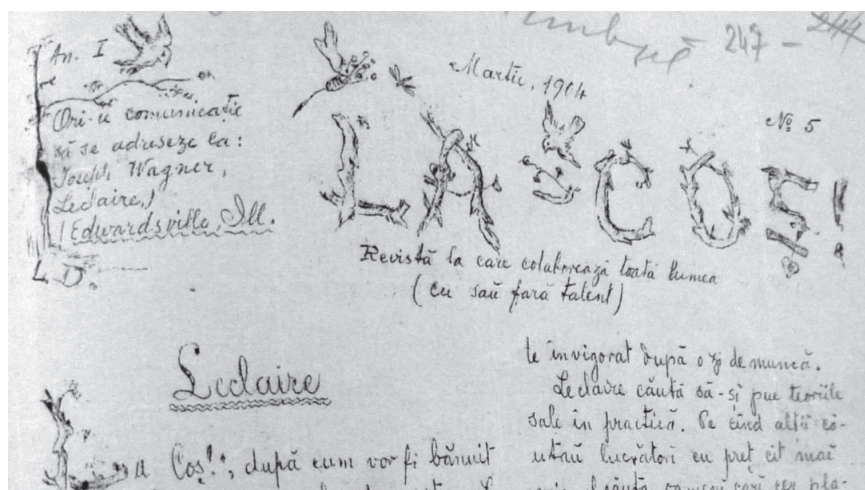 An. I
Ori-ce comunicație
să se adreseze la:
Joseph Wagner,
Leclaire,
Edwardsville, Ill.
L. D.
247 - 244
Martie, 1904
No 5
LA COȘ!
Revistă la care colaborează toată lumea
(cu sau fără talent)
Leclaire
"La Coș!", după cum vor fi bănuit
te învigorat după o zi de muncă.
Leclaire căută să-și pue teoriile
sale în practică. Pe cînd alții că-
utau lucrători cu preț cît mai
oameni cari cer pla-